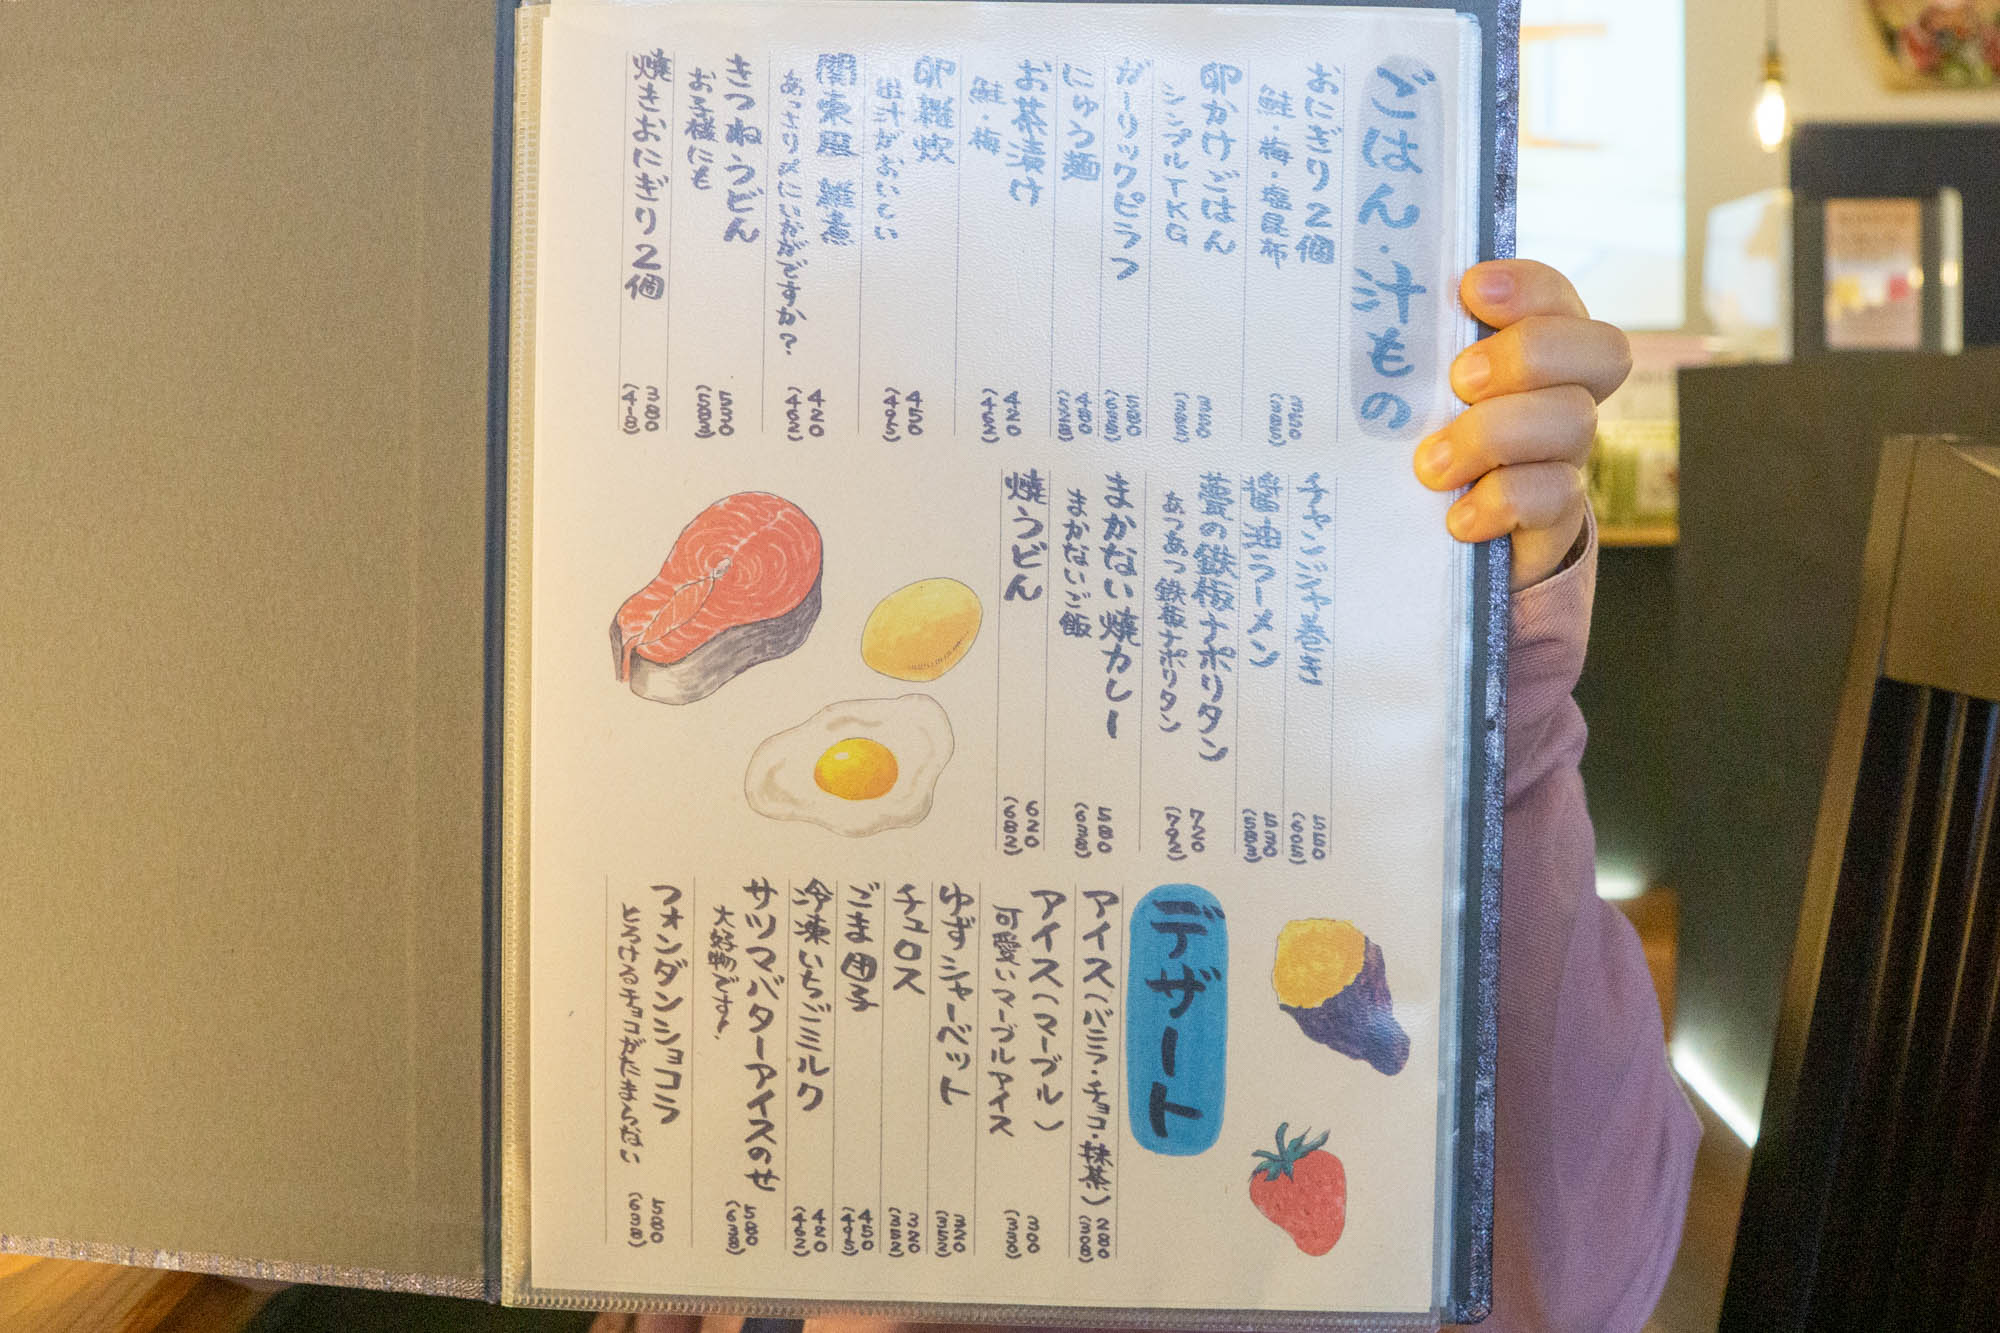 ごはん・汁もの
おにぎり2個
鮭・梅・塩昆布
350
(385)
卵かけごはん
シンプルTKG
350
(385)
ガーリックピラフ
580
(638)
にゅう麺
480
(528)
お茶漬け
鮭・梅
420
(462)
卵雑炊
出汁がおいしい
450
(495)
関東風 雑煮
あっさり〆にいかがですか?
420
(462)
きつねうどん
お子様にも
530
(583)
焼きおにぎり2個
380
(418)
チャンジャ巻き
550
(605)
醤油ラーメン
530
(583)
甍の鉄板ナポリタン
あつあつ鉄板ナポリタン
720
(792)
まかない焼カレー
まかないご飯
580
(638)
焼うどん
620
(682)
デザート
アイス(バニラ・チョコ・抹茶)
280
(308)
アイス(マーブル)
可愛いマーブルアイス
300
(330)
ゆずシャーベット
320
(352)
チュロス
320
(352)
ごま団子
450
(495)
冷凍いちごミルク
420
(462)
サツマバターアイスのせ
大好物です♪
580
(638)
フォンダンショコラ
とろけるチョコがたまらない
580
(638)